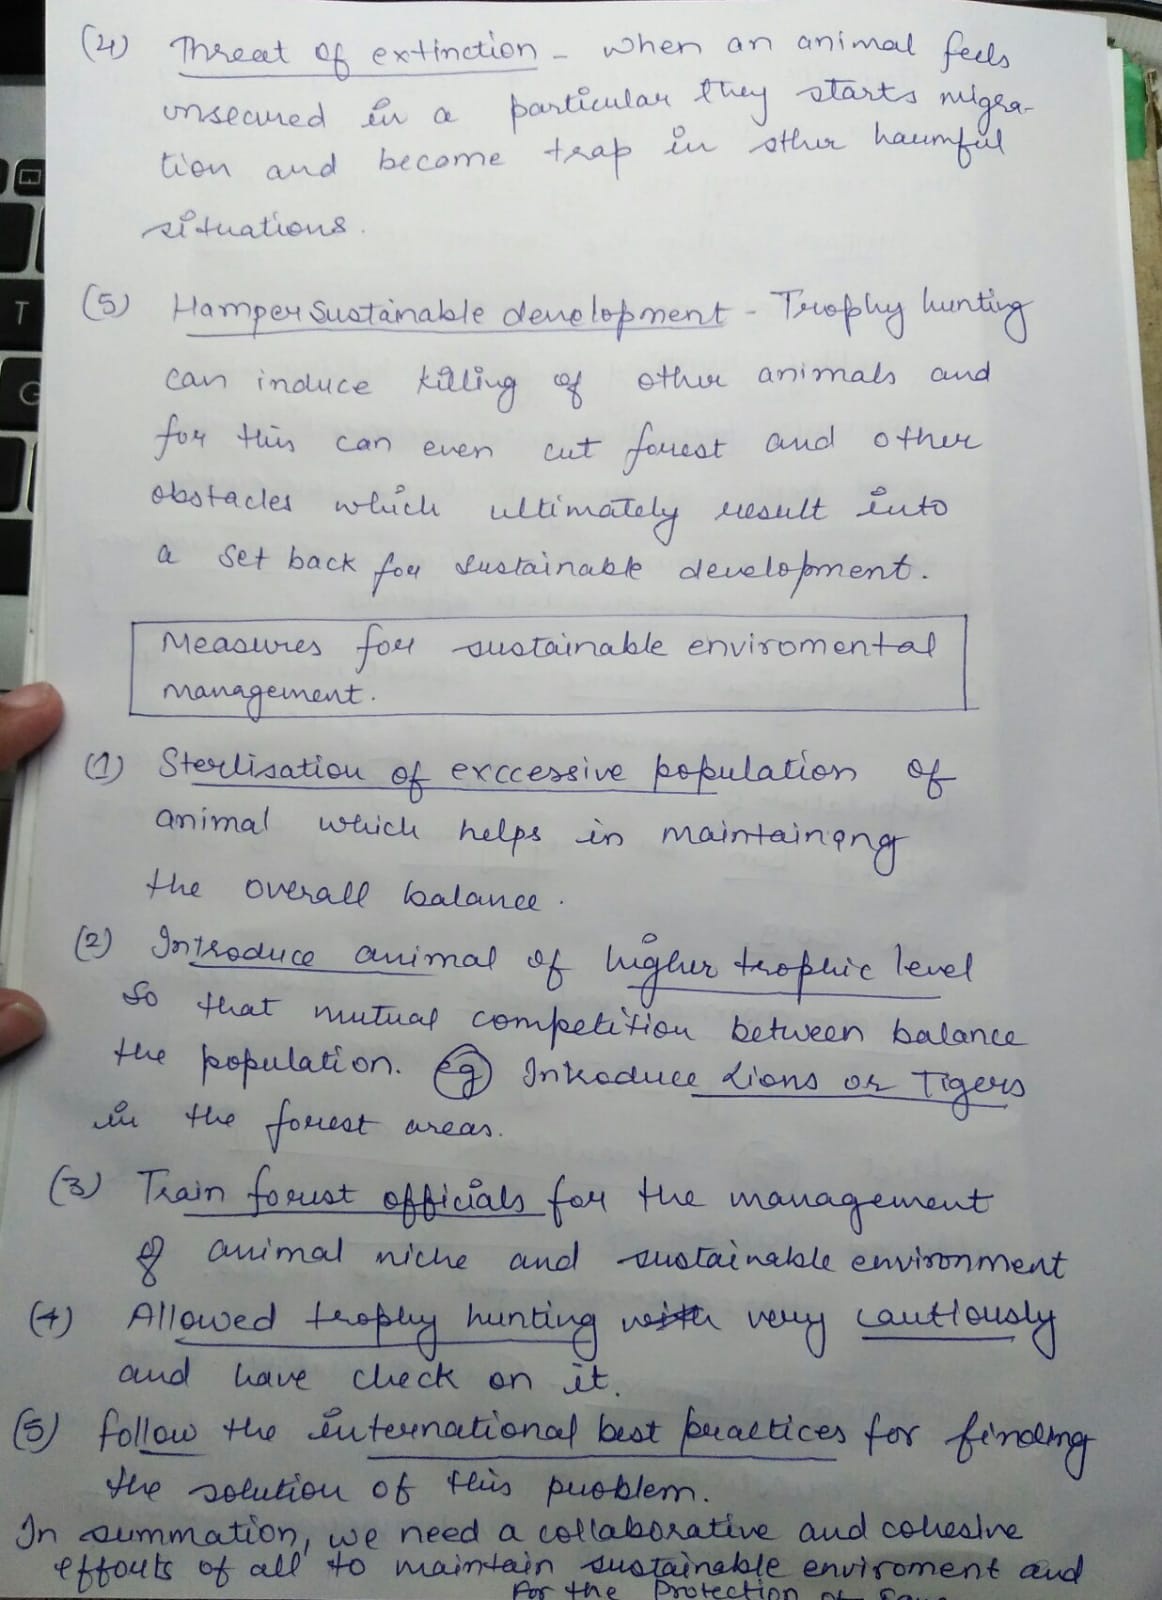 (4) Threat of extinction - When an animal feels
unsecured in a particular they starts migra-
tion and become trap in other harmful
situations.
(5) Hamper Sustainable development - Trophy hunting
can induce killing of other animals and
for this can even cut forest and other
obstacles which ultimately result into
a set back for sustainable development.
Measures for sustainable enviromental
management.
(1) Sterlisation of exccessive population of
animal which helps in maintaining
the overall balance.
(2) Introduce animal of higher trophic level
so that mutual competition between balance
the population. eg Introduce Lions or Tigers
in the forest areas.
(3) Train forest officials for the management
of animal niche and sustainable environment
(4) Allowed trophy hunting very cautiously
and have check on it.
(5) follow the international best practices for finding
the solution of this problem.
In summation, we need a collaborative and cohesive
efforts of all to maintain sustainable enviroment and
For the Protection of
T
G